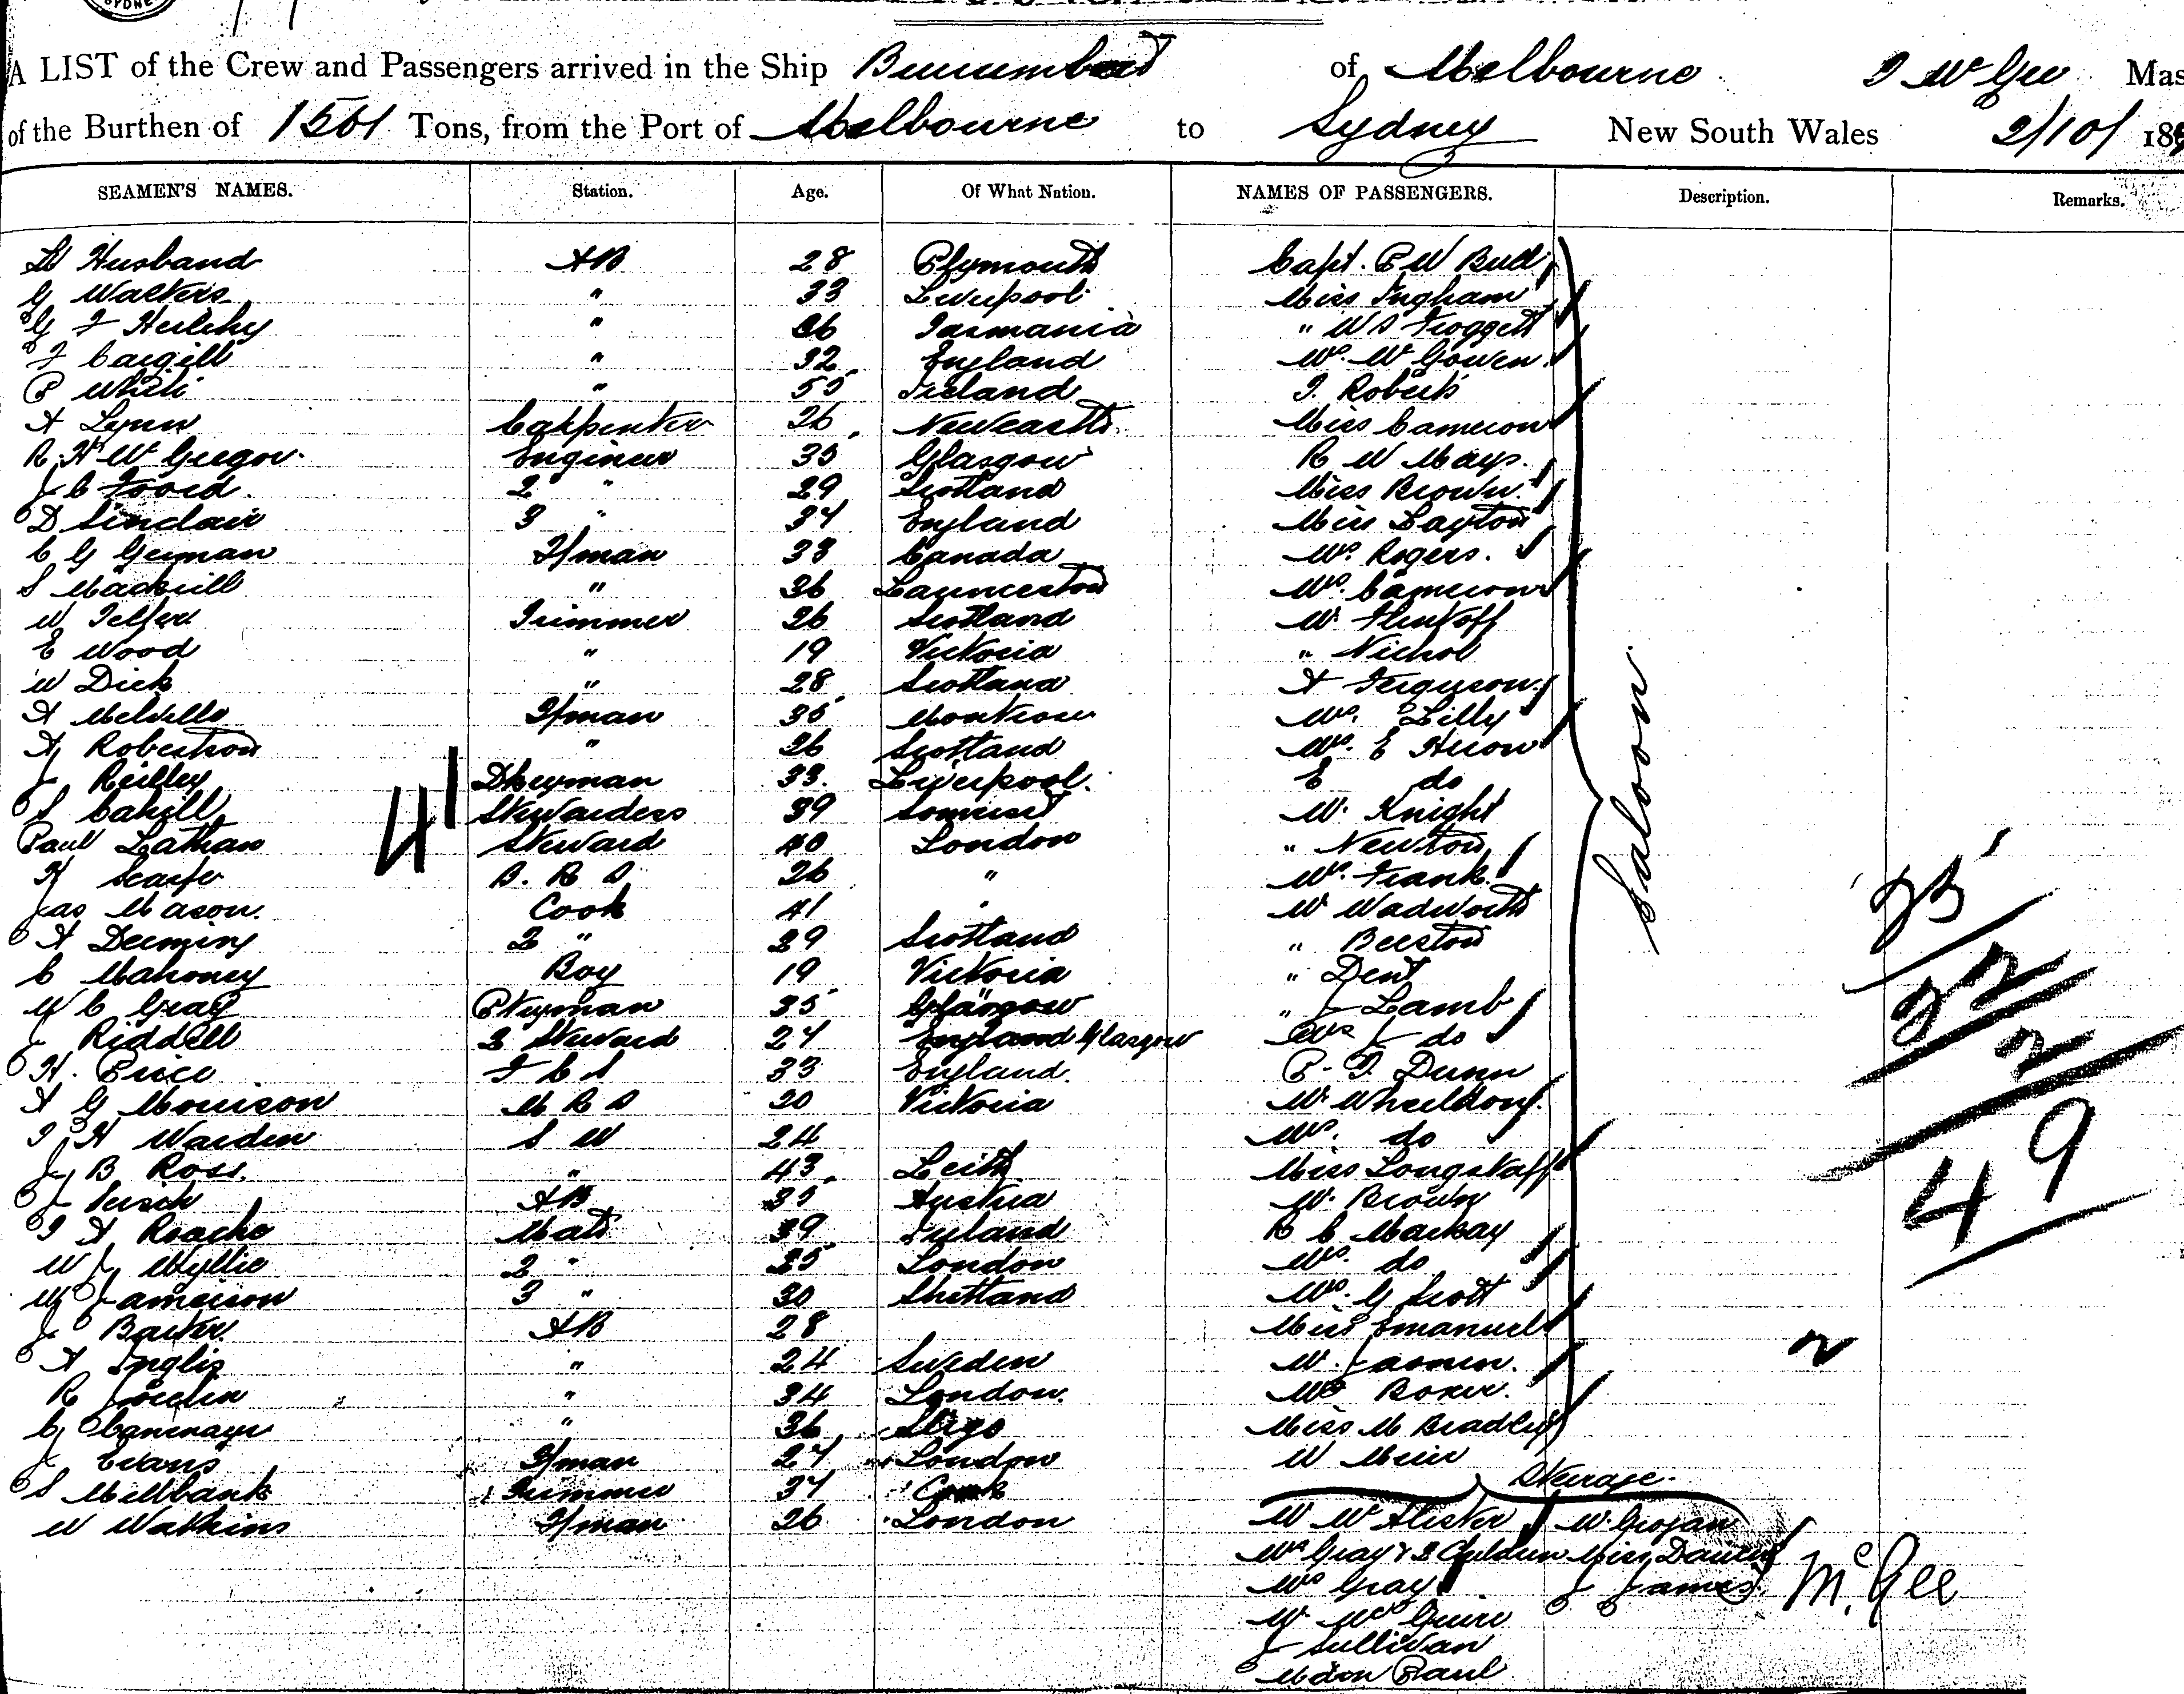 A LIST of the Crew and Passengers arrived in the Ship of Melbourne Mas
of the Burthen of 1501 Tons, from the Port of Melbourne to Sydney New South Wales 2/10/ 189
SEAMEN'S NAMES. Station. Age. Of What Nation. NAMES OF PASSENGERS. Description. Remarks.
Husband AB 28 Plymouth Capt. P W Bull
G Walters " 33 Liverpool Miss Ingham
G F " 36 Tasmania " W S Froggett
J Cargill " 32 England Mrs. McGowen
P White " 55 Ireland J. Roberts
A Lynn Carppenter 26 Newcastle Miss Cameron
R H McGregor Engineer 35 Glasgow R W Mays.
J C Foord. 2 " 29 Scotland Miss Brown.
D Sinclair 3 " 34 England Miss Layton
C G German F/man 33 Canada Mrs. Rogers.
S F/man " 36 Launceston Mrs. Cameron
W Telfer Trimmer 26 Scotland Mr.
E Wood " 19 Victoria " Nichol
W Dick " 28 Scotland A Ferguson
A Melville F/man 35 Montrose Mrs. Lilly
A Robertson " 26 Scotland Mrs. E Heron
J Reilley Dkeyman 33. Liverpool. E do
S Cahill Stewardess 39 Somerset Mr. Knight
Paul Lathan Steward 40 London " Newton
H B. R S 26 " Mrs. Frank
Jas Mason. Cook 41 " Mr Wadworth
A Deeming 2 " 29 Scotland " Beeston
C Mahoney Boy 19 Victoria " Dent
W C Gray Ptryman 35 Glasgow " J Lamb
J Riddell 2 Steward 24 England Glasgow Mrs J do
H. Price F C S 33 England. P. J. Dunn
A G Morrison M R S 20 Victoria Mr. Wheeldon
J H Warden S W 24 Mrs. do
J B Ross. " 43 Leith Miss Longstaff
J AB 35 Austria Mr. Brown
J A Roache Mate 39 Ireland R C Mackay
W J Wyllie 2 " 25 London Mrs. do
W Jameison 3 " 30 Shetland Mrs. G Scott
J Barker AB 28 Miss Emanuel
A Inglis " 24 Sweden Mr.
R " 34 London.
G " 36 Sligo Miss M Bradley
J Evans F/man 27 London W Meir
S Millbank Trimmer 37 Cook Steerage.
W Watkins F/man 26 London W McAlister Mr. Grogan
Mrs Gray & 2 Children Miss
Mrs Gray J James. McGee
Mr McGuire
J Sullivan
Mdm Paul
Saloon.
41
35
22
2
49
2